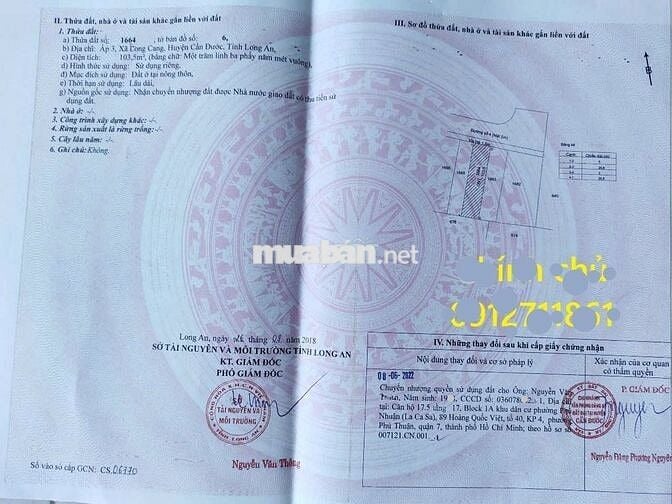 II. Thửa đất, nhà ở và tài sản khác gắn liền với đất
1. Thửa đất:
a) Thửa đất số: 1664 , tờ bản đồ số: 6,
b) Địa chỉ: Ấp 3, Xã Long Cang, Huyện Cần Đước, Tỉnh Long An,
c) Diện tích: 103,5m², (bằng chữ: Một trăm linh ba phẩy năm mét vuông),
d) Hình thức sử dụng: Sử dụng riêng,
đ) Mục đích sử dụng: Đất ở tại nông thôn,
e) Thời hạn sử dụng: Lâu dài,
g) Nguồn gốc sử dụng: Nhận chuyển nhượng đất được Nhà nước giao đất có thu tiền sử
dụng đất.
2. Nhà ở: -/-
3. Công trình xây dựng khác: -/-
4. Rừng sản xuất là rừng trồng: -/-
5. Cây lâu năm: -/-
6. Ghi chú: Không.
Long An, ngày 2018
SỞ TÀI NGUYÊN VÀ MÔI TRƯỜNG TỈNH LONG AN
KT. GIÁM ĐỐC
PHÓ GIÁM ĐỐC
SỞ
TÀI NGUYÊN VÀ
MÔI TRƯỜNG
Nguyễn Văn Thông
Số vào sổ cấp GCN: CS.06370
muaban.net
III. Sơ đồ thửa đất, nhà ở và tài sản khác gắn liền với đất
IV. Những thay đổi sau khi cấp giấy chứng nhận
Nội dung thay đổi và cơ sở pháp lý
Xác nhận của cơ quan
có thẩm quyền
08-06-2022
Chuyển nhượng quyền sử dụng đất cho Ông: Nguyễn Văn
Năm sinh: CCCD số: 036078 Địa chỉ
tại: Căn hộ 17.5 tầng 17, Block 1A khu dân cư phường Phú
Nhuận (La Ca Sa), 89 Hoàng Quốc Việt, tổ 40, KP 4, phường
Phú Thuận, quận 7, thành phố Hồ Chí Minh; theo hồ sơ số
007121.CN.001
GIÁM ĐỐC
CẦN ĐƯỚC
Nguyễn Đăng Phương Nguyên